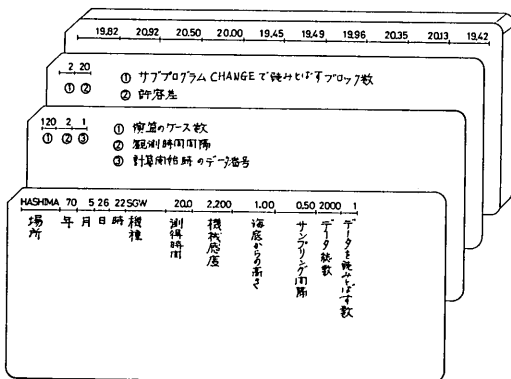 19.82 20.92 20.50 20.00 19.45 19.49 19.96 20.35 20.13 19.42
2 20
① ②
① サブプログラム CHANGE で読みとばすブロック数
② 許容差
120 2 1
① ② ③
① 演算のケース数
② 観測時間間隔
③ 計算開始時のデータ番号
HASHIMA 70 5 26 22 SGW 20.0 2.200 1.00 0.50 2000 1
場所
年
月
日
時
機種
測得時間
機械感度
海底からの高さ
サンプリング間隔
データ総数
データを読みとばす数